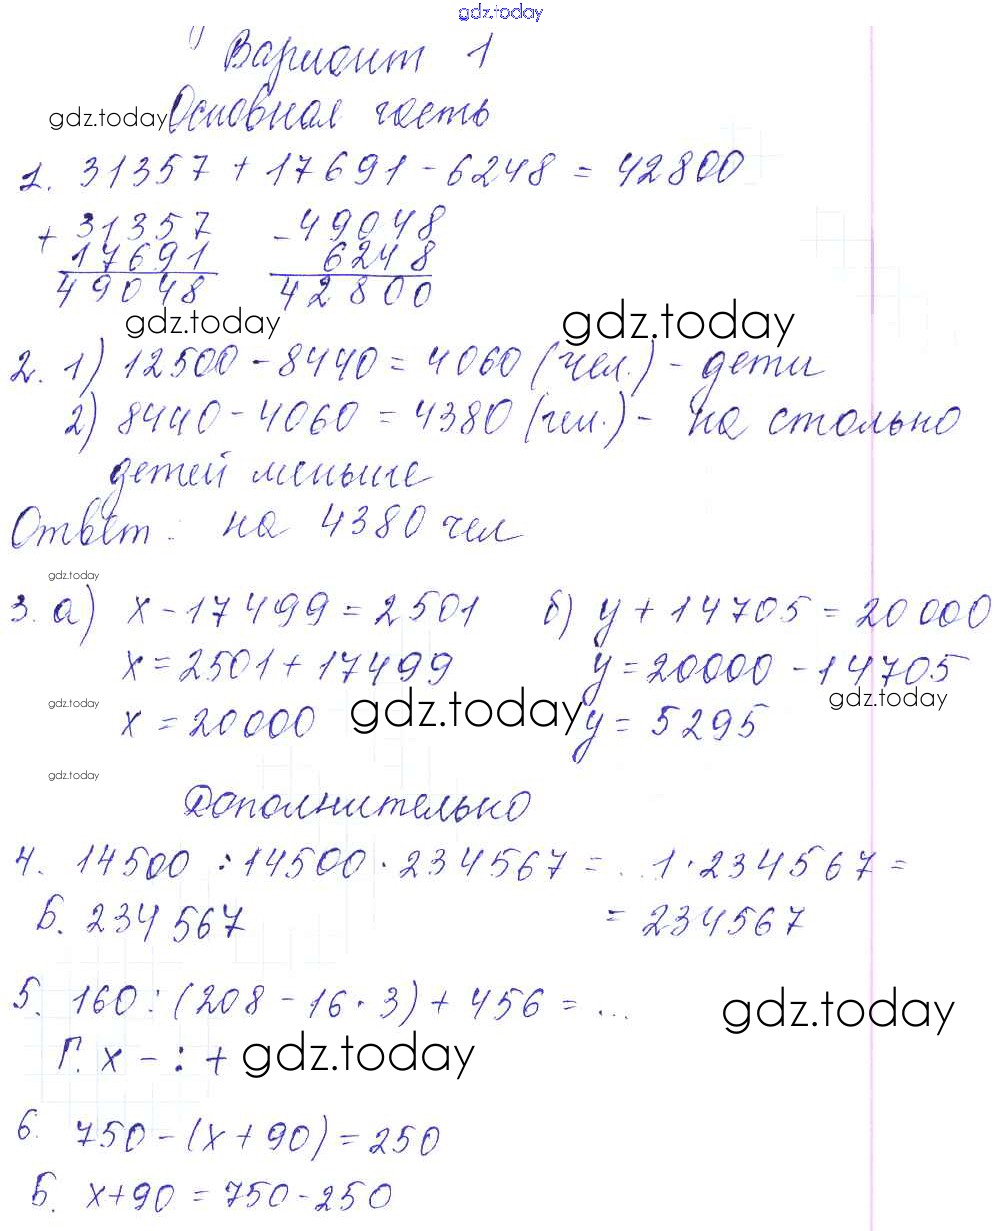 gdz.today
1) Вариант 1
gdz.today Основная часть
1. 31357 + 17691 - 6248 = 42800
+ 31357 - 49048
17691 6248
49048 42800
gdz.today gdz.today
2. 1) 12500 - 8440 = 4060 (чел.) - дети
2) 8440 - 4060 = 4380 (чел.) - на столько
детей меньше
Ответ: на 4380 чел
gdz.today
3. а) x - 17499 = 2501 б) y + 14705 = 20000
x = 2501 + 17499 y = 20000 - 14705
gdz.today x = 20000 gdz.today y = 5295 gdz.today
gdz.today
Дополнительно
4. 14500 : 14500 · 234567 = ...1 · 234567 =
Б. 234567 = 234567
5. 160 : (208 - 16 · 3) + 456 = ... gdz.today
Г. x - : + gdz.today
6. 750 - (x + 90) = 250
Б. x + 90 = 750 - 250